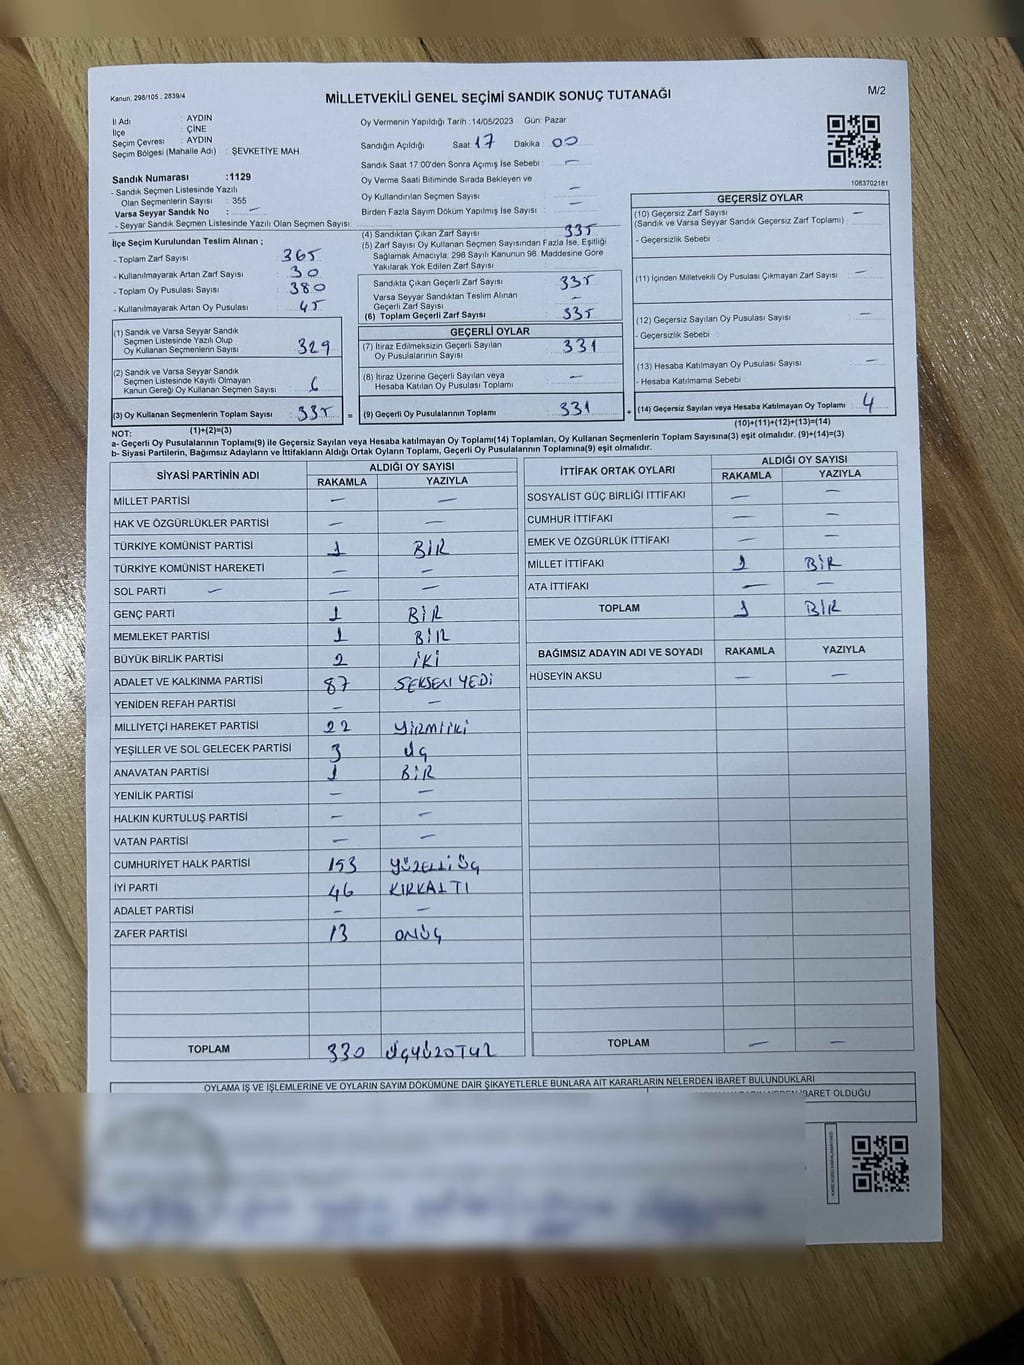 Kanun: 298/105 , 2839/4
MİLLETVEKİLİ GENEL SEÇİMİ SANDIK SONUÇ TUTANAĞI
M/2
İl Adı : AYDIN
İlçe : ÇİNE
Seçim Çevresi : AYDIN
Seçim Bölgesi (Mahalle Adı) : ŞEVKETİYE MAH.
Sandık Numarası :1129
- Sandık Seçmen Listesinde Yazılı
Olan Seçmenlerin Sayısı : 355
Varsa Seyyar Sandık No : –
- Seyyar Sandık Seçmen Listesinde Yazılı Olan Seçmen Sayısı:
İlçe Seçim Kurulundan Teslim Alınan ;
- Toplam Zarf Sayısı : 365
- Kullanılmayarak Artan Zarf Sayısı : 30
- Toplam Oy Pusulası Sayısı : 380
- Kullanılmayarak Artan Oy Pusulası : 45
(1) Sandık ve Varsa Seyyar Sandık
Seçmen Listesinde Yazılı Olup
Oy Kullanan Seçmenlerin Sayısı : 329
(2) Sandık ve Varsa Seyyar Sandık
Seçmen Listesinde Kayıtlı Olmayan
Kanun Gereği Oy Kullanan Seçmen Sayısı : 6
(3) Oy Kullanan Seçmenlerin Toplam Sayısı : 335 =
(1)+(2)=(3)
Oy Vermenin Yapıldığı Tarih :14/05/2023 Gün: Pazar
Sandığın Açıldığı Saat: 17 Dakika : 00
Sandık Saat 17:00'den Sonra Açımış İse Sebebi : –
Oy Verme Saati Bitiminde Sırada Bekleyen ve
Oy Kullandırılan Seçmen Sayısı : –
Birden Fazla Sayım Döküm Yapılmış İse Sayısı : –
(4) Sandıktan Çıkan Zarf Sayısı : 335
(5) Zarf Sayısı Oy Kullanan Seçmen Sayısından Fazla İse, Eşitliği
Sağlamak Amacıyla, 298 Sayılı Kanunun 98. Maddesine Göre
Yakılarak Yok Edilen Zarf Sayısı :
Sandıkta Çıkan Geçerli Zarf Sayısı : 335
Varsa Seyyar Sandıktan Teslim Alınan
Geçerli Zarf Sayısı : –
(6) Toplam Geçerli Zarf Sayısı : 335
GEÇERLİ OYLAR
(7) İtiraz Edilmeksizin Geçerli Sayılan
Oy Pusulalarının Sayısı : 331
(8) İtiraz Üzerine Geçerli Sayılan veya
Hesaba Katılan Oy Pusulası Toplamı : –
(9) Geçerli Oy Pusulalarının Toplamı : 331 +
1083702181
GEÇERSİZ OYLAR
(10) Geçersiz Zarf Sayısı : –
(Sandık ve Varsa Seyyar Sandık Geçersiz Zarf Toplamı)
- Geçersizlik Sebebi :
(11) İçinden Milletvekili Oy Pusulası Çıkmayan Zarf Sayısı : –
(12) Geçersiz Sayılan Oy Pusulası Sayısı : –
- Geçersizlik Sebebi :
(13) Hesaba Katılmayan Oy Pusulası Sayısı : –
- Hesaba Katılmama Sebebi :
(14) Geçersiz Sayılan veya Hesaba Katılmayan Oy Toplamı : 4
(10)+(11)+(12)+(13)=(14)
NOT:
a- Geçerli Oy Pusulalarının Toplamı(9) ile Geçersiz Sayılan veya Hesaba katılmayan Oy Toplamı(14) Toplamları, Oy Kullanan Seçmenlerin Toplam Sayısına(3) eşit olmalıdır. (9)+(14)=(3)
b- Siyasi Partilerin, Bağımsız Adayların ve İttifakların Aldığı Ortak Oyların Toplamı, Geçerli Oy Pusulalarının Toplamına(9) eşit olmalıdır.
SİYASİ PARTİNİN ADI ALDIĞI OY SAYISI
RAKAMLA YAZIYLA
MİLLET PARTİSİ – –
HAK VE ÖZGÜRLÜKLER PARTİSİ – –
TÜRKİYE KOMÜNİST PARTİSİ 1 BİR
TÜRKİYE KOMÜNİST HAREKETİ – –
SOL PARTİ – – –
GENÇ PARTİ 1 BİR
MEMLEKET PARTİSİ 1 BİR
BÜYÜK BİRLİK PARTİSİ 2 İKİ
ADALET VE KALKINMA PARTİSİ 87 SEKSEN YEDİ
YENİDEN REFAH PARTİSİ – –
MİLLİYETÇİ HAREKET PARTİSİ 22 YİRMİİKİ
YEŞİLLER VE SOL GELECEK PARTİSİ 3 ÜÇ
ANAVATAN PARTİSİ 1 BİR
YENİLİK PARTİSİ – –
HALKIN KURTULUŞ PARTİSİ – –
VATAN PARTİSİ – –
CUMHURİYET HALK PARTİSİ 153 YÜZELLİÜÇ
İYİ PARTİ 46 KIRKALTI
ADALET PARTİSİ – –
ZAFER PARTİSİ 13 ONÜÇ
TOPLAM 330 ÜÇYÜZOTUZ
İTTİFAK ORTAK OYLARI ALDIĞI OY SAYISI
RAKAMLA YAZIYLA
SOSYALİST GÜÇ BİRLİĞİ İTTİFAKI – –
CUMHUR İTTİFAKI – –
EMEK VE ÖZGÜRLÜK İTTİFAKI – –
MİLLET İTTİFAKI 1 BİR
ATA İTTİFAKI – –
TOPLAM 1 BİR
BAĞIMSIZ ADAYIN ADI VE SOYADI RAKAMLA YAZIYLA
HÜSEYİN AKSU – –
TOPLAM – –
OYLAMA İŞ VE İŞLEMLERİNE VE OYLARIN SAYIM DÖKÜMÜNE DAİR ŞİKAYETLERLE BUNLARA AİT KARARLARIN NELERDEN İBARET BULUNDUKLARI
İBARET OLDUĞU